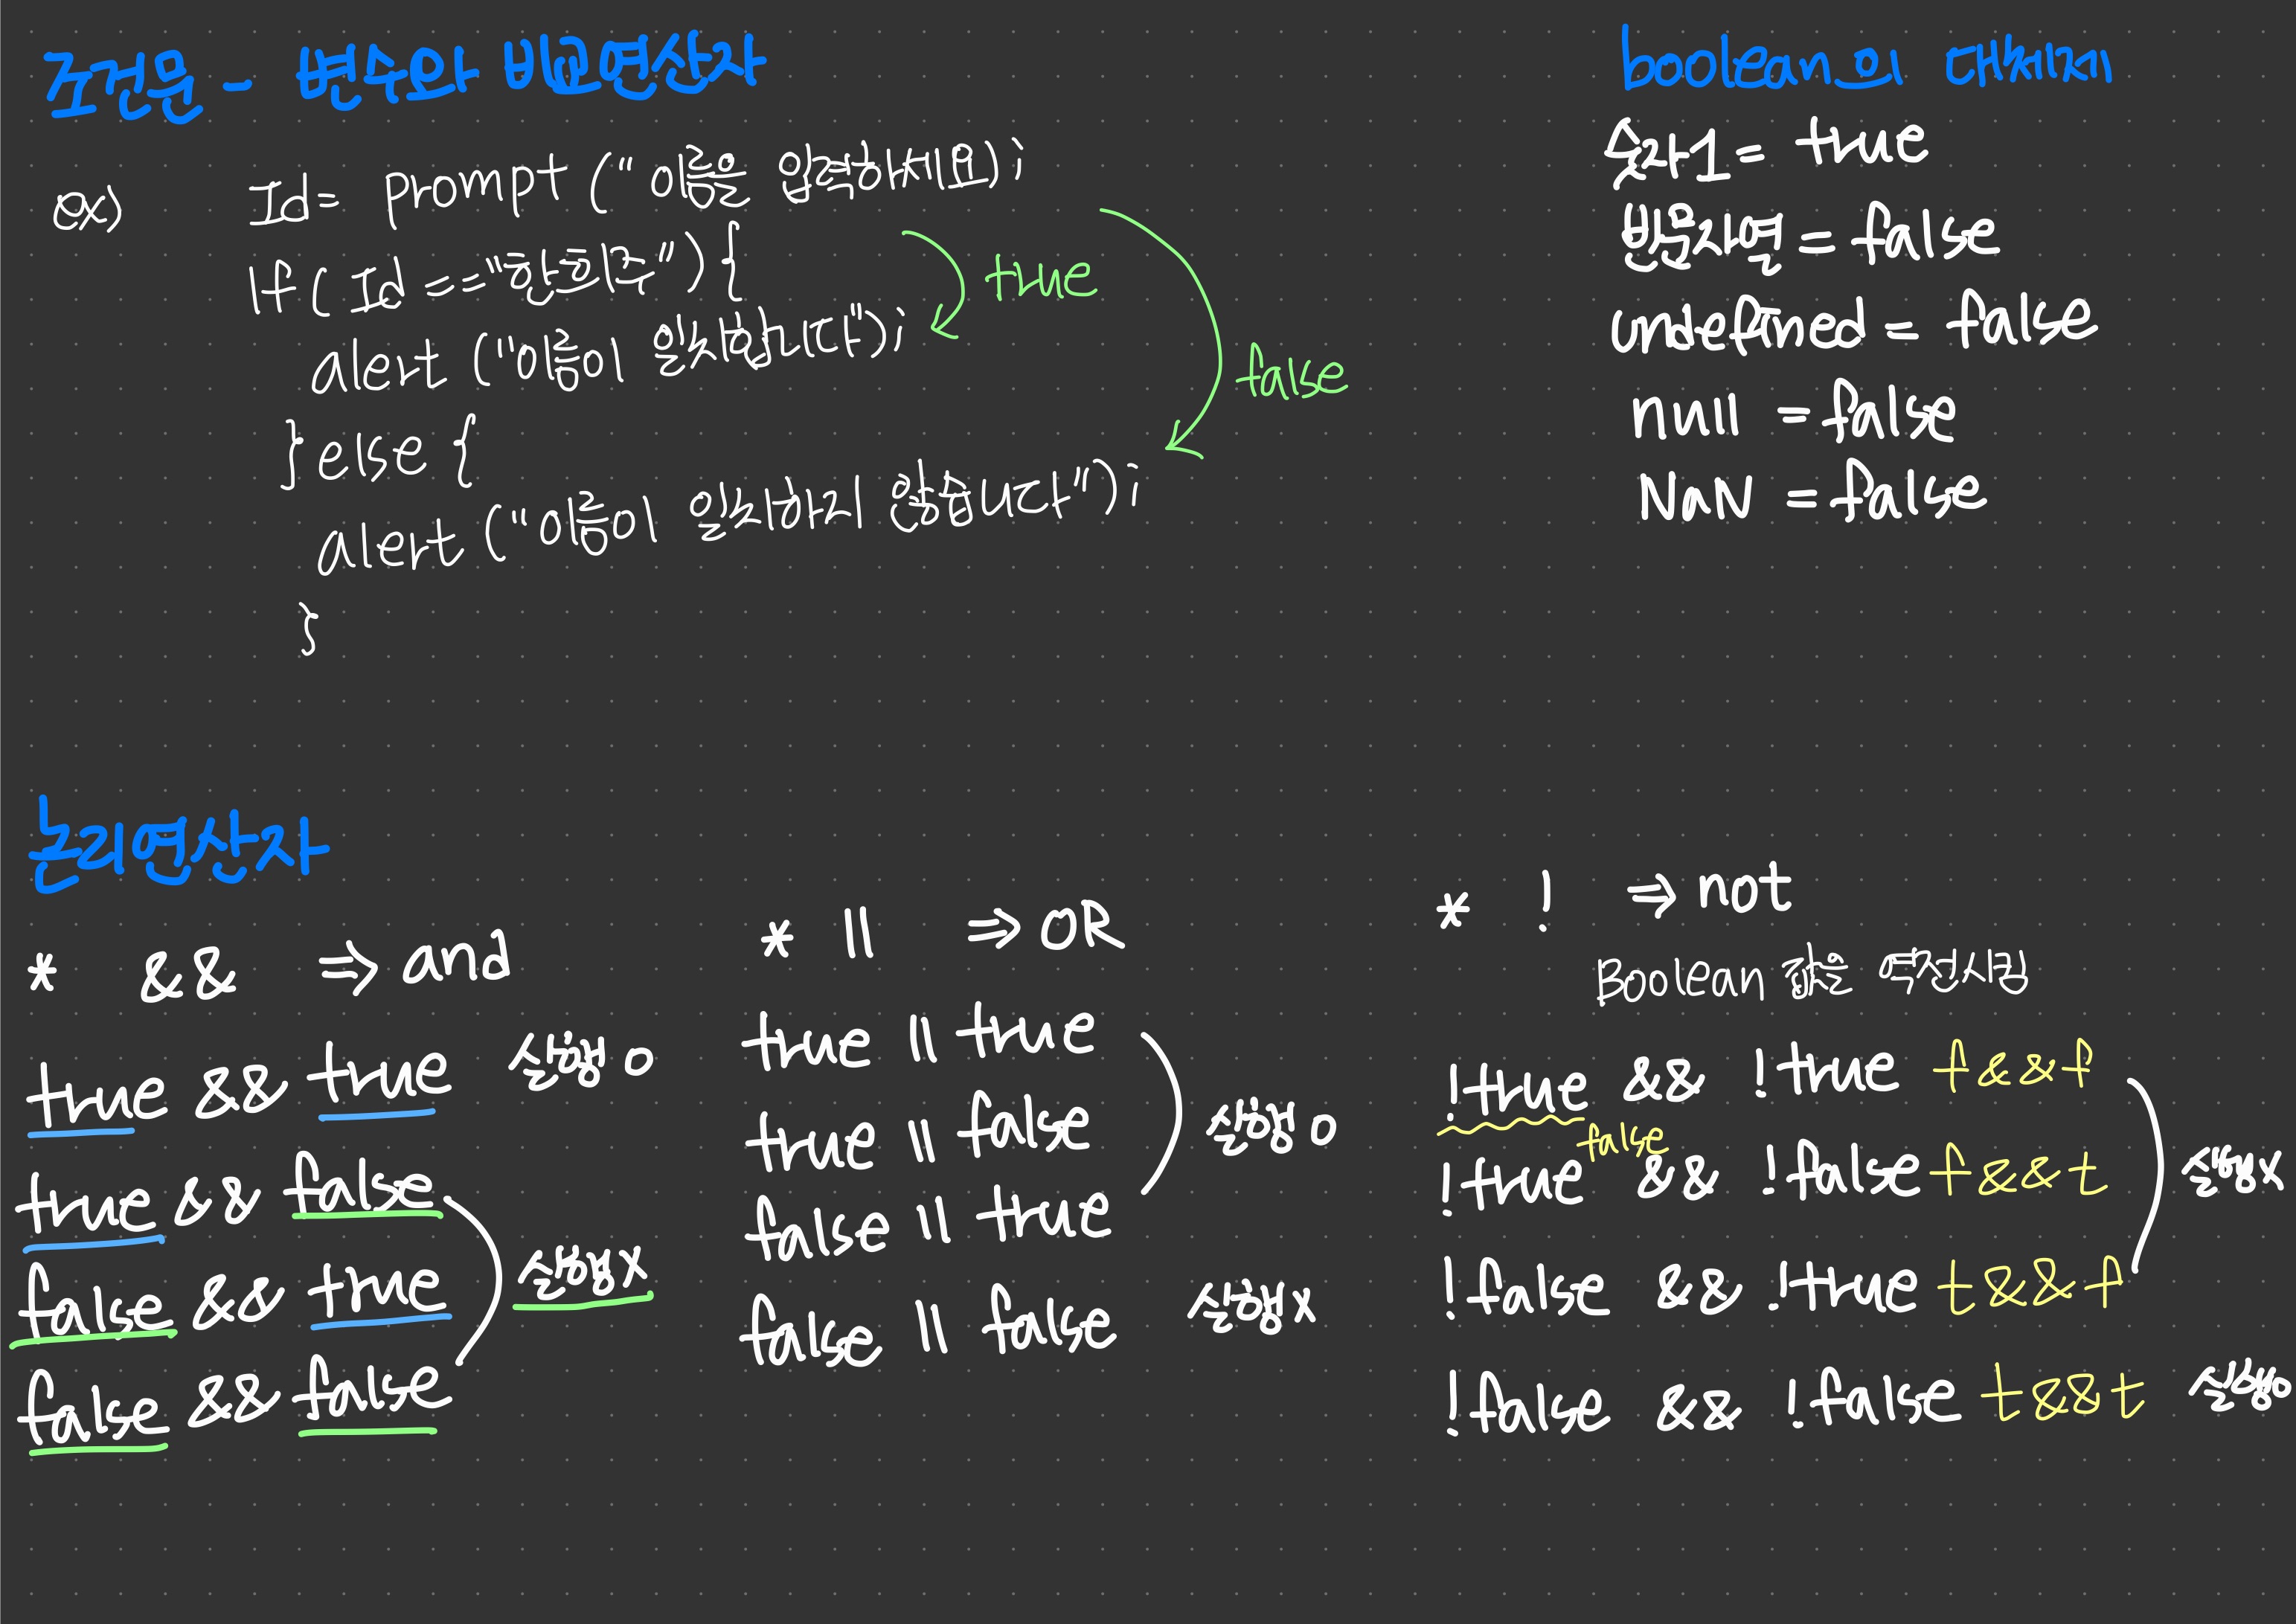 조건문 - 변수와 비교연산자
ex) Id= prompt ("이름을 입력하세요);
If( Id =="") {
true
alert ("이름이 일치합니다");
false
} else {
alert ("이름이 일치하지 않습니다");
}
boolean의 대체재
숫자1= true
빈문자열 = false
undefined = false
null = false
NaN = false
논리연산자
* && ⇒ and
true && true 실행 o
true && false
false && true 실행x
false && false
* || ⇒ OR
true || true
true || false 실행 o
false || true
false || false 실행x
* ! ⇒ not
Boolean 값을 역전시킴
!true && !true f&&f
false
!true && !false f&&t 실행x
!false && !true t&&f
!false && !false t&&t 실행o